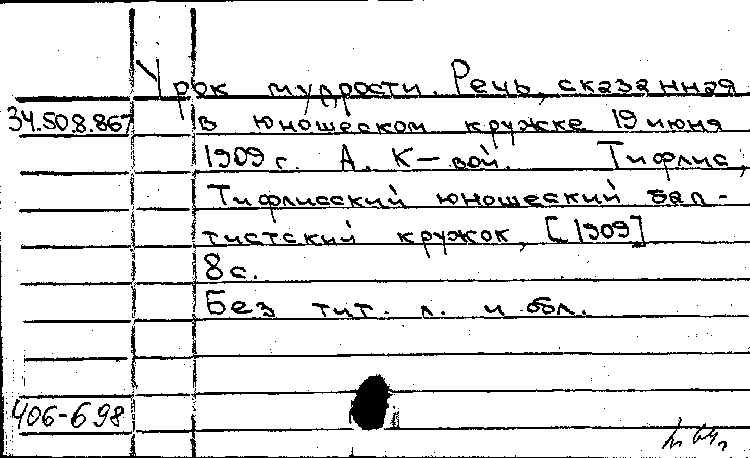 Урок мудрости. Речь, сказанная
34.508.867 в юношеском кружке 19 июня
1909 г. А. К-вой. Тифлис,
Тифлисский юношеский бап-
тистский кружок, [1909]
8 с.
Без тит. л. и обл.
406-698